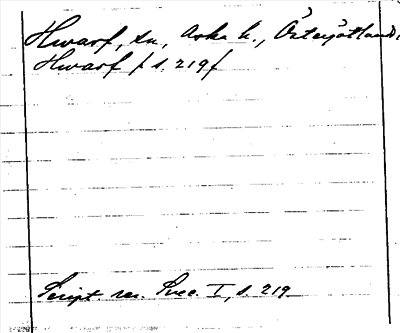 Hwarf, sn, Aska h., Östergötland,
Hwarf / s. 219 /
Script. rer. Svec. I, s. 219